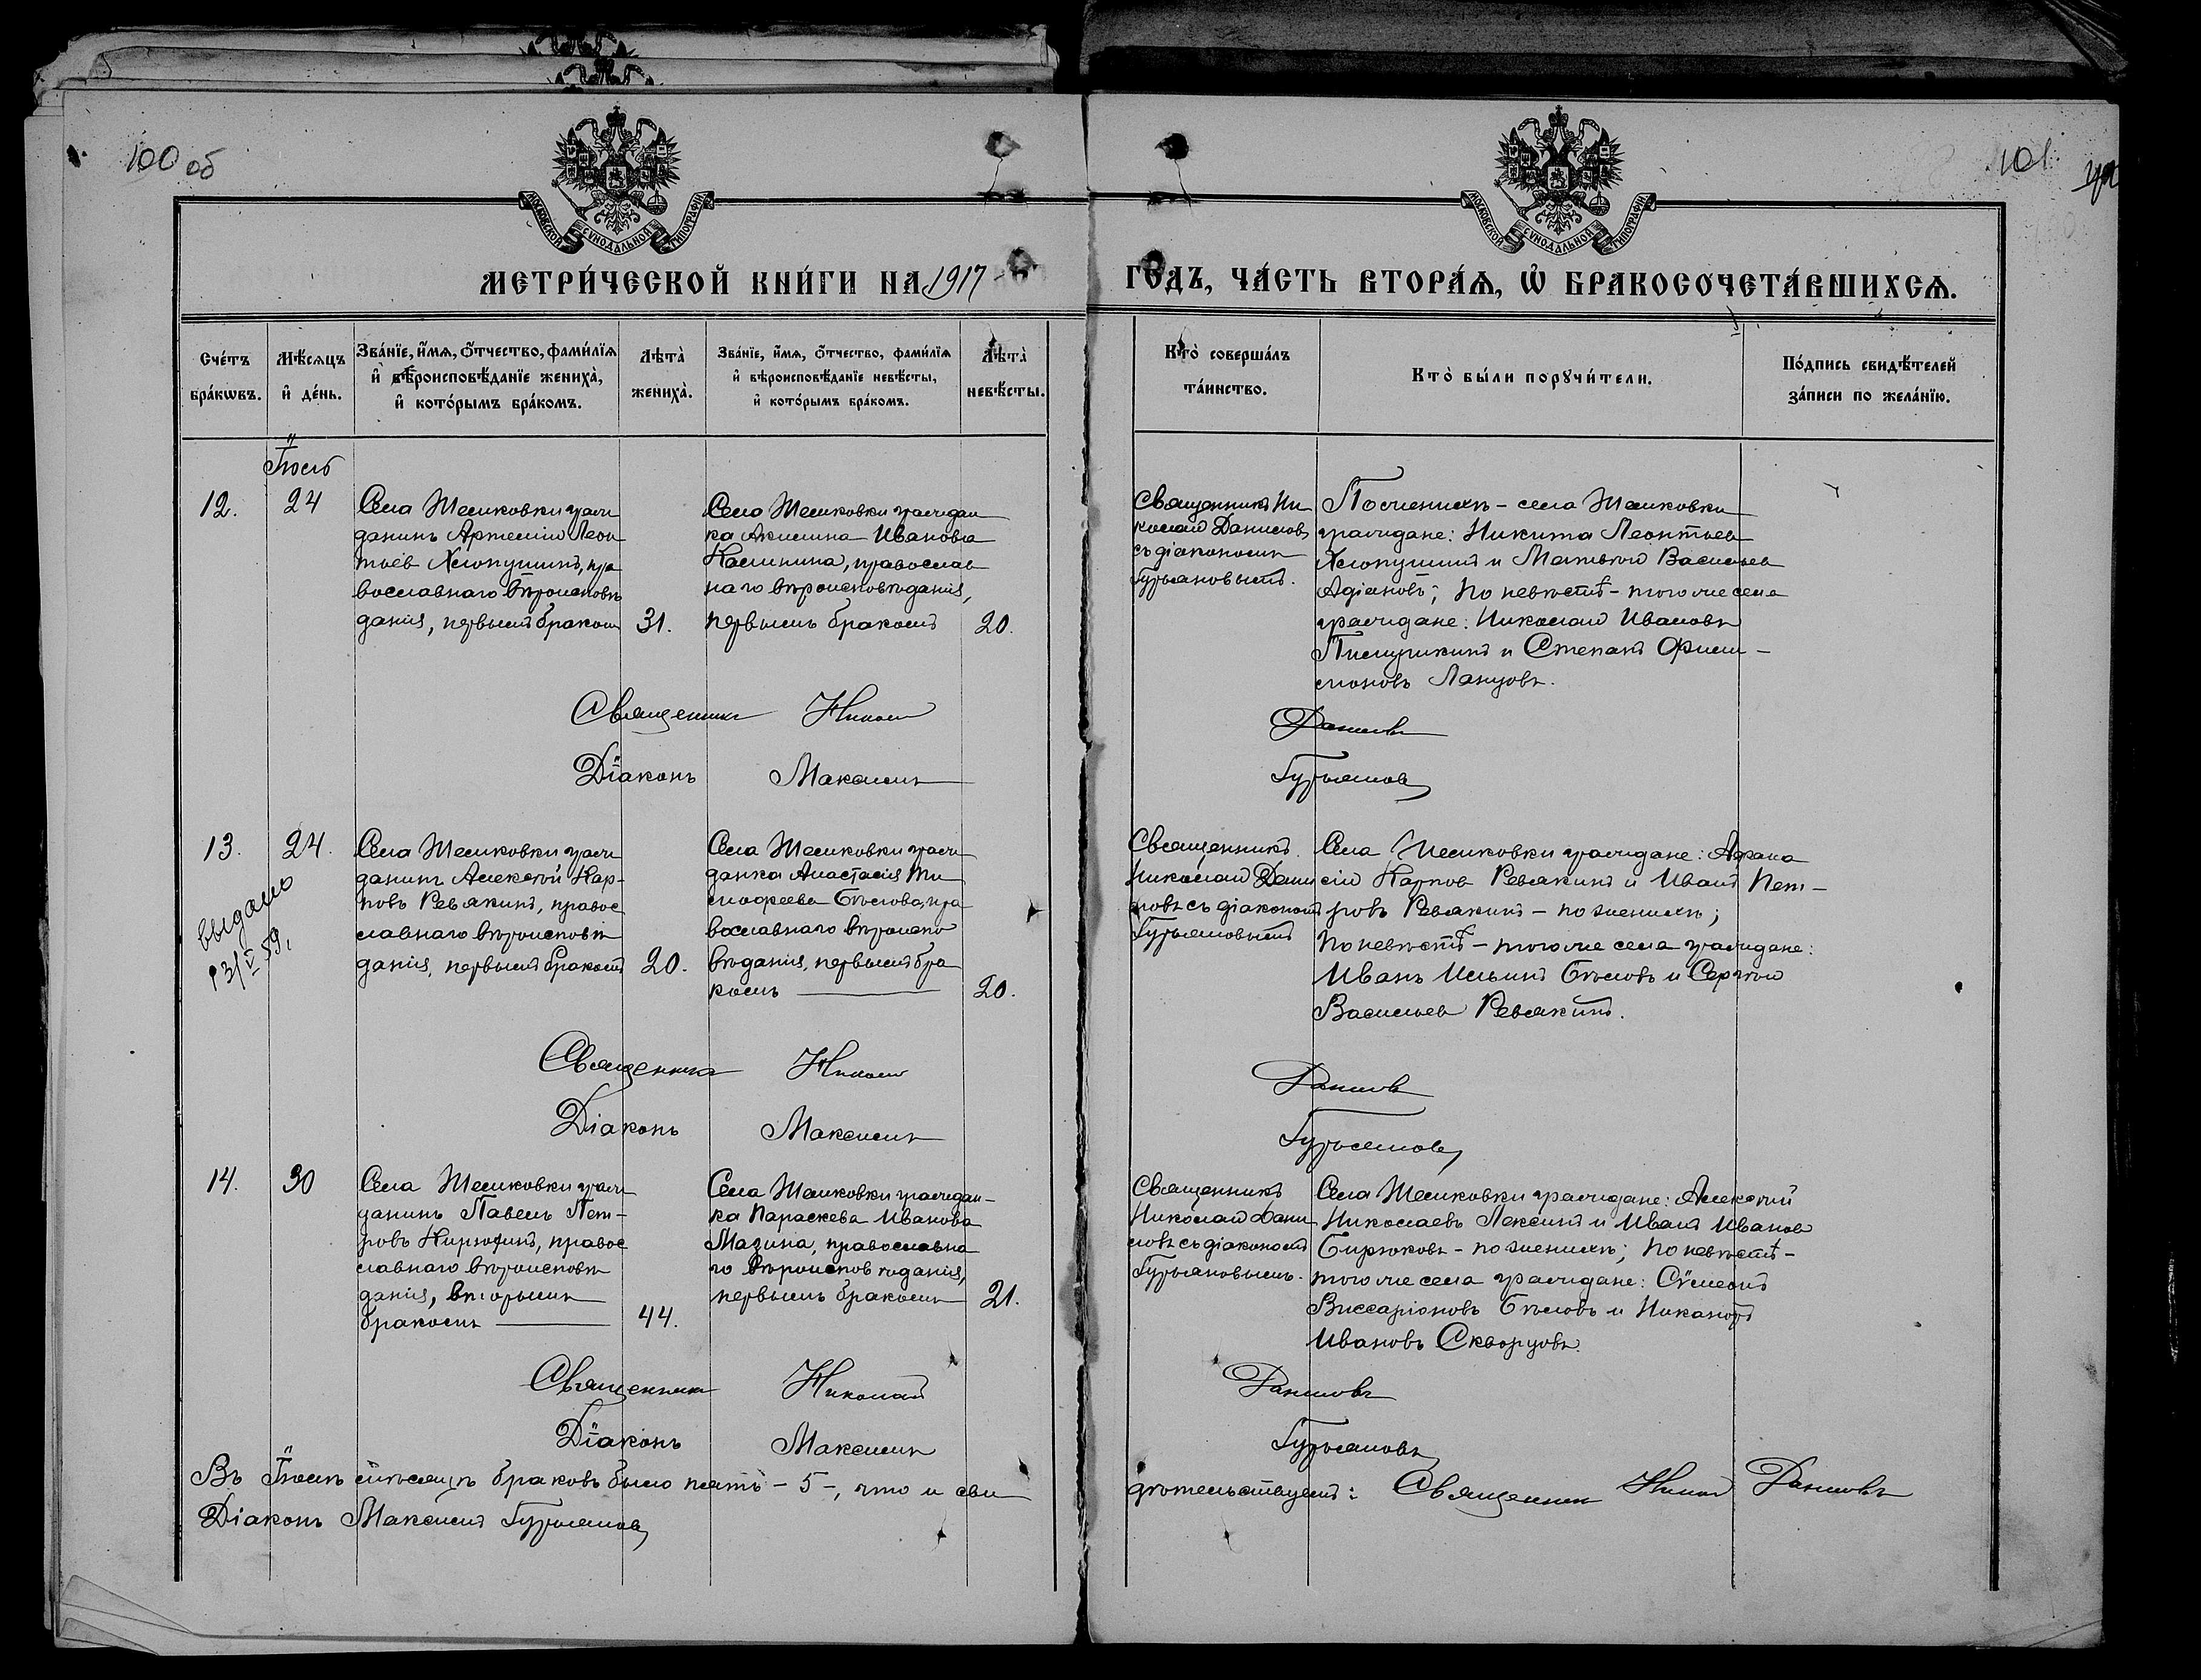 100 об
101
МОСКОВСКОЙ СѴНОДАЛЬНОЙ ТИПОГРАФІИ
МОСКОВСКОЙ СѴНОДАЛЬНОЙ ТИПОГРАФІИ
МЕТРИ́ЧЕСКОЙ КНИ́ГИ НА 1917 ГОДЪ, ЧА́СТЬ ВТОРА́Ѧ, Ѽ БРАКОСОЧЕТА́ВШИХСѦ.
Сче́тъ
бра́кѡвъ.
Мѣ́сѧцъ
и҆ де́нь.
Зва́нїе, и҆́мѧ, ѻ҆́тчество, фами́лїѧ
и҆ вѣроисповѣ́данїе жениха̀,
и҆ кото́рымъ бра́комъ.
Лѣта̀
жениха̀.
Зва́нїе, и҆́мѧ, ѻ҆́тчество, фами́лїѧ
и҆ вѣроисповѣ́данїе невѣ́сты,
и҆ кото́рымъ бра́комъ.
Лѣта̀
невѣ́сты.
Кто̀ соверша́лъ
та́инство.
Кто̀ бы́ли порꙋчи́тели.
По́дпись свидѣ́телей
за́писи по жела́нїю.
Іюль
12.
24
Села Шемиковки граж
данинъ Артемій Леон
тьев Хлопушинъ, пра
вославнаго вѣроисповѣ
данія, первымъ бракомъ
31.
Села Шемиковки граждан
ка Акилина Иванова
Калинина, православ
наго вѣроисповѣданія,
первымъ бракомъ
20.
Священникъ Ни
колай Данилов
съ діакономъ
Гурьяновымъ.
По женихѣ – села Шемиковки
граждане: Никита Леонтьев
Хлопушинъ и Матвѣй Васильев
Адіановъ; по невѣстѣ – того же села
граждане: Николай Ивановъ
Пишушкинъ и Степанъ Фили–
моновъ Ланцовъ.
Священникъ Никол Данилов
Діаконъ Максимъ Гурьянов
13.
24.
выдано
13/V 59 г.
Села Шемиковки граж
данинъ Алексѣй Кар–
повъ Ревякинъ, правос
лавнаго вѣроисповѣ
данія, первымъ бракомъ
20.
Села Шемиковки граж
данка Анастасія Ти
моѳеева Бѣлова, пра
вославнаго вѣроиспо
вѣданія, первымъ бра
комъ
20.
Священникъ
Николай Дани
ловъ съ діакономъ
Гурьяновымъ
Села Шемиковки граждане: Афана
сій Карпов Ревякинъ и Иванъ Пет–
ровъ Ревякинъ – по женихѣ;
по невѣстѣ – того же села граждане:
Иванъ Ильинъ Бѣловъ и Сергѣй
Васильев Ревякинъ.
Священникъ Николай Данилов
Діаконъ Максимъ Гурьянов
14.
30
Села Шемиковки граж
данинъ Павелъ Пет–
ровъ Кирюхинъ, правос
лавнаго вѣроисповѣ
данія, вторымъ
бракомъ
44.
Села Шемиковки граждан–
ка Параскева Иванова
Мазина, православна
го вѣроисповѣданія,
первымъ бракомъ
21.
Священникъ
Николай Дани
ловъ съ діакономъ
Гурьяновымъ.
Села Шемиковки граждане: Алексѣй
Николаевъ Лексинъ и Иванъ Иванов
Бирюковъ – по женихѣ; по невѣстѣ –
того же села граждане: Сѵмеонъ
Виссаріоновъ Бѣловъ и Никаноръ
Ивановъ Скворцовъ.
Священникъ Николай Даниловъ
Діаконъ Максимъ Гурьяновъ
Въ Іюлѣ мѣсяцѣ браковъ было пять – 5 –, что и сви
дѣтельствуемъ: Священникъ Никол Даниловъ
Діаконъ Максимъ Гурьянов